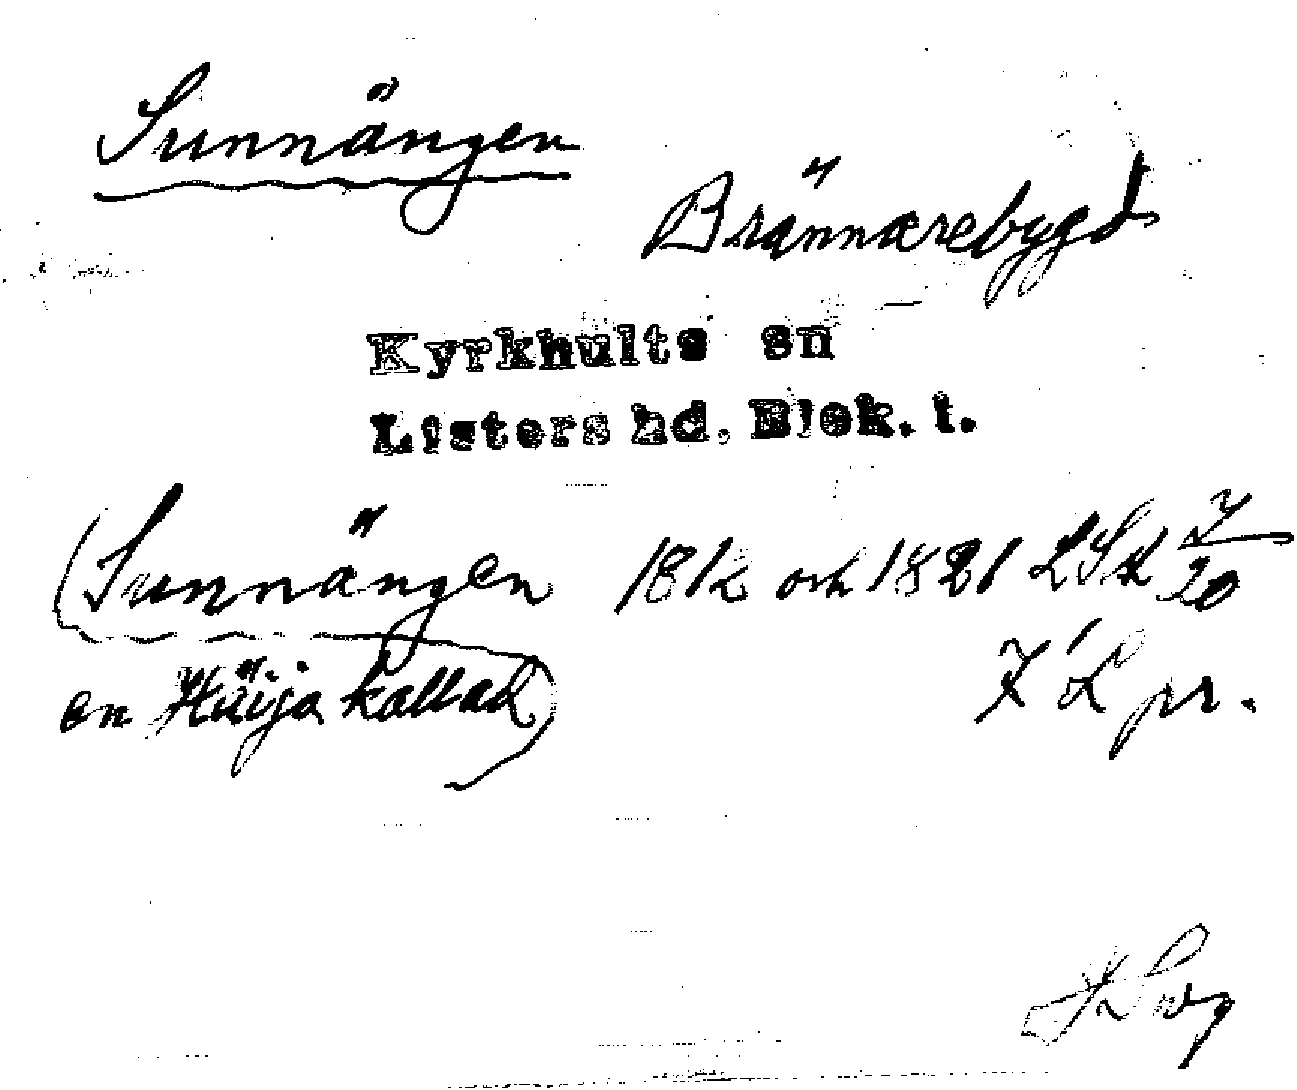 Sunnängen
Brännarebygd
Kyrkhults sn
Listers hd. Blek. l.
(Sunnängen 1812 och 1821 LSk 7/20
en Häija kallad) 7 L pr.